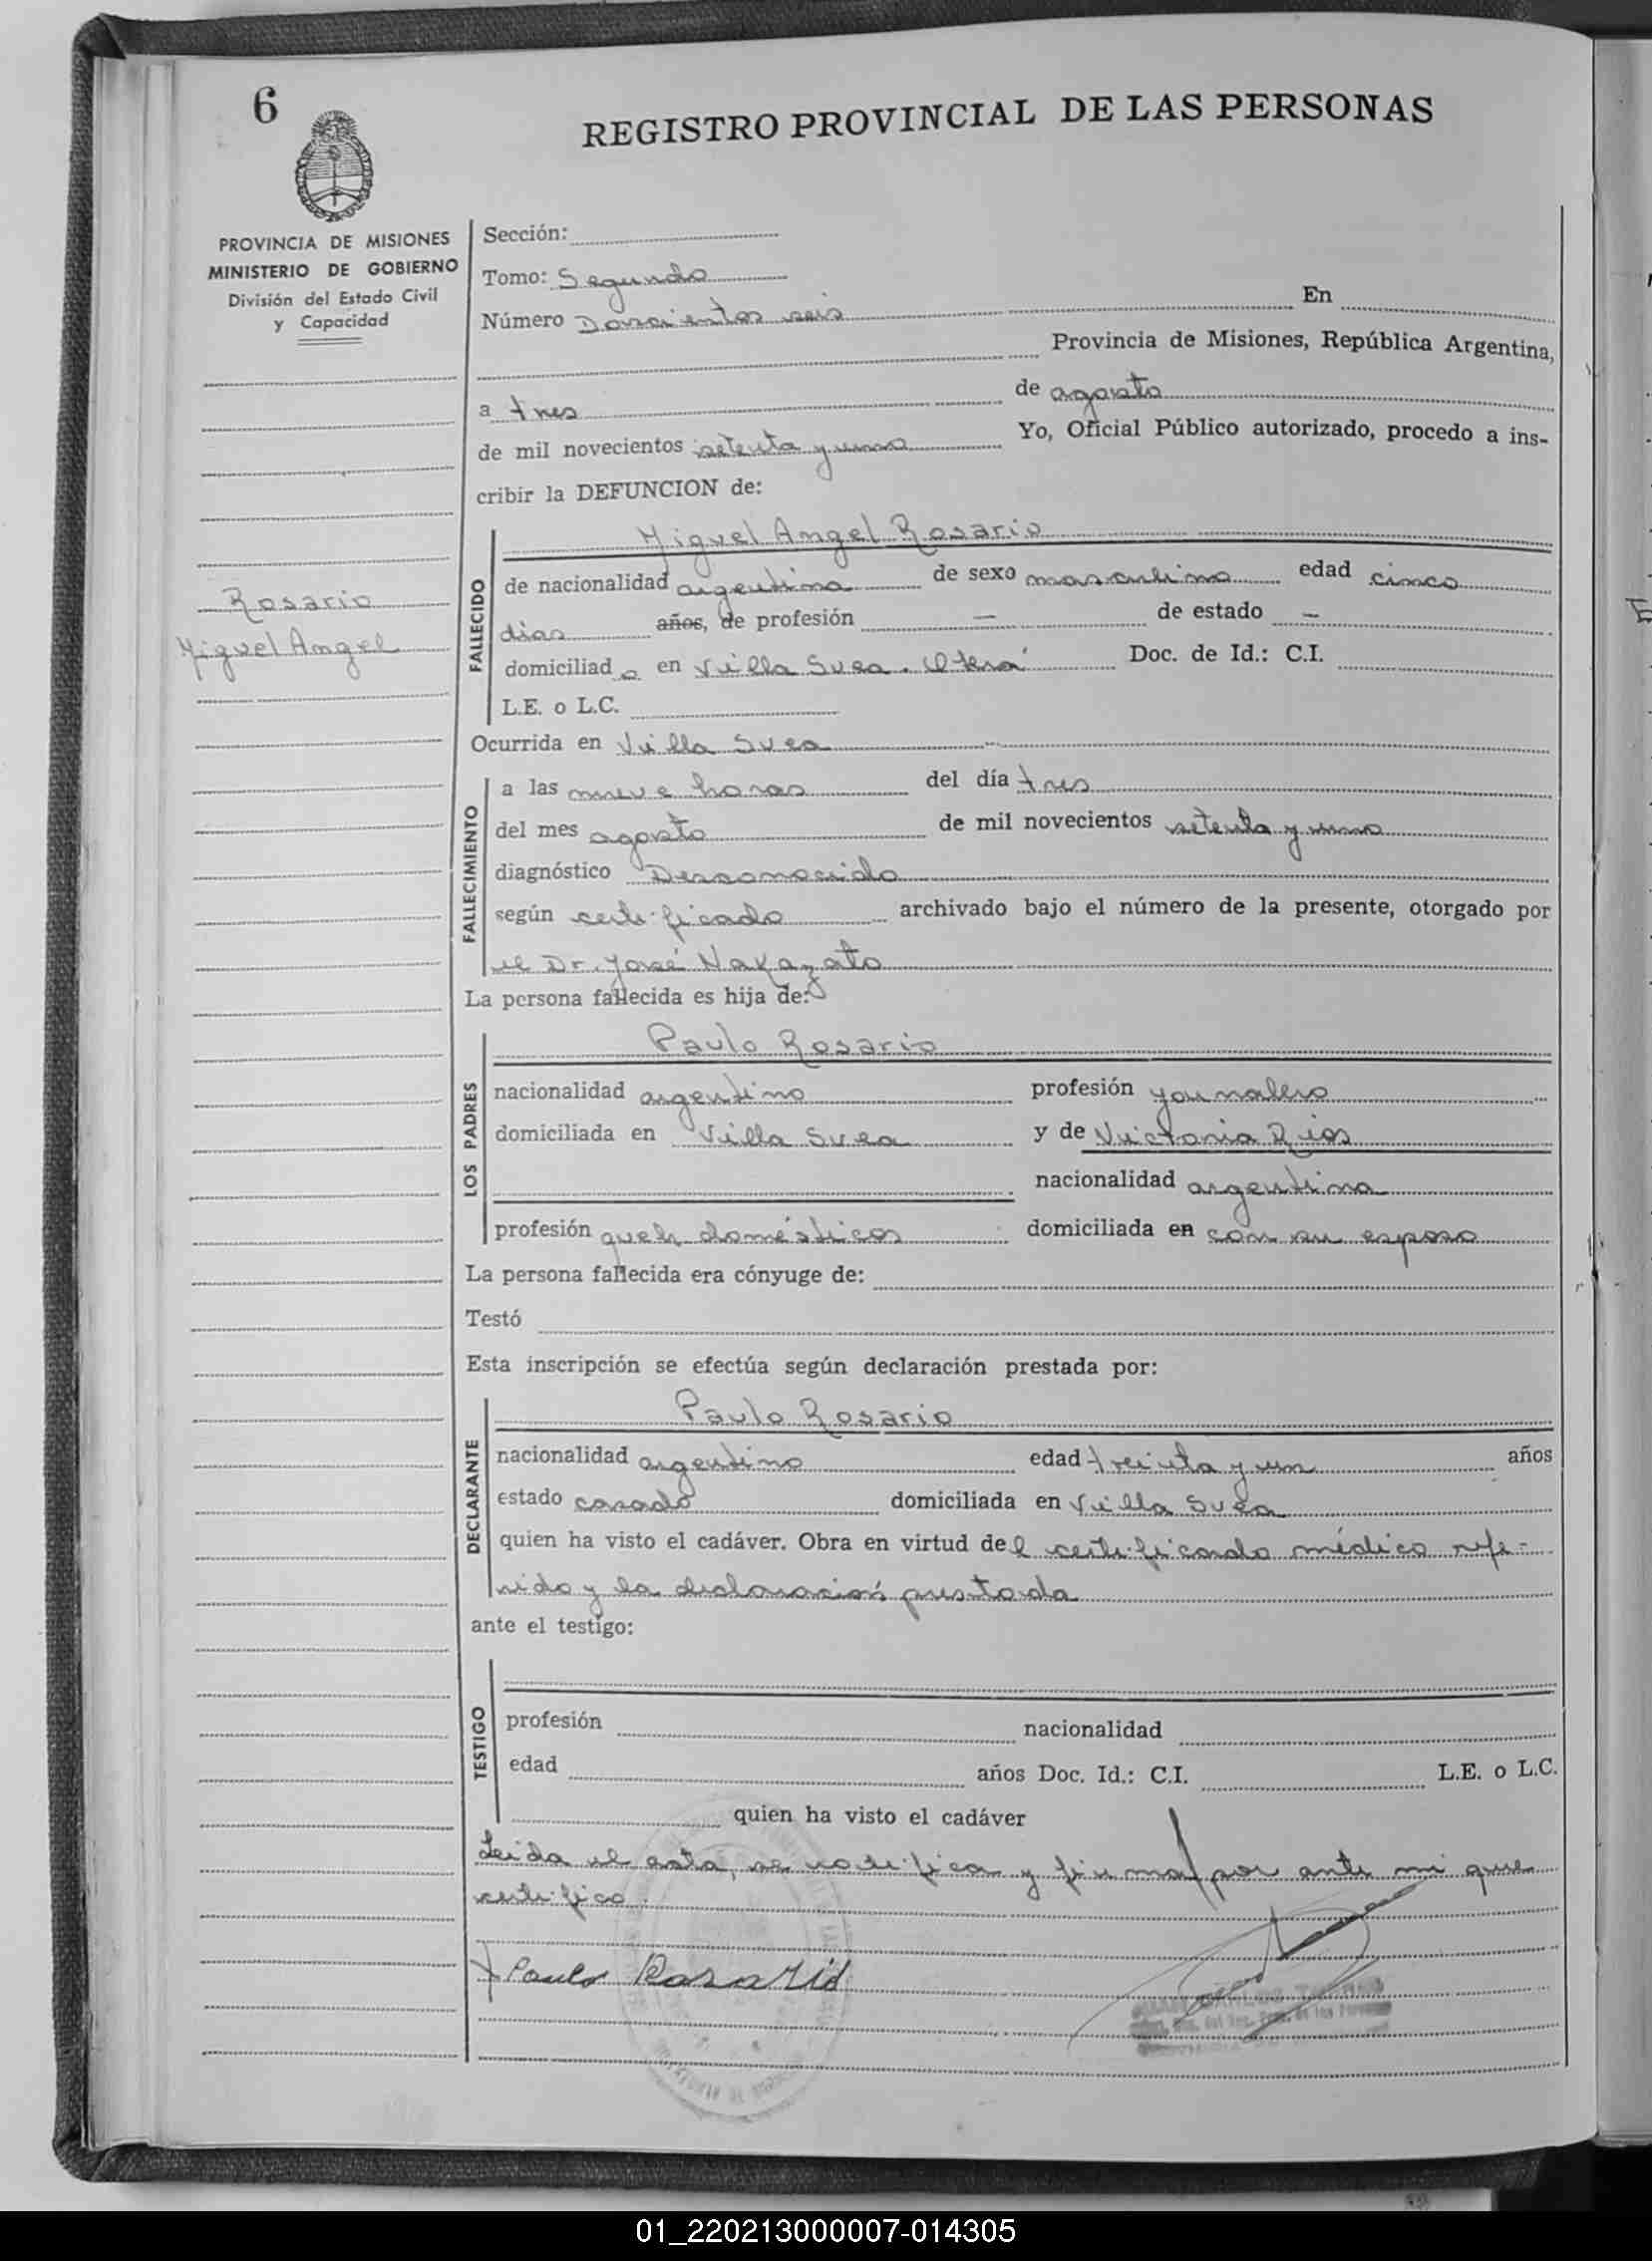 6
REGISTRO PROVINCIAL DE LAS PERSONAS
PROVINCIA DE MISIONES
MINISTERIO DE GOBIERNO
División del Estado Civil
y Capacidad
Rosario
Miguel Angel
Sección:
Tomo: Segundo
Número Doscientos seis En
Provincia de Misiones, República Argentina,
a tres de agosto
de mil novecientos setenta y uno Yo, Oficial Público autorizado, procedo a ins-
cribir la DEFUNCION de:
FALLECIDO
Miguel Angel Rosario
de nacionalidad argentina de sexo masculino edad cinco
dias años, de profesión — de estado —
domiciliado en Villa Svea. Oberá Doc. de Id.: C.I.
L.E. o L.C.
Ocurrida en Villa Svea
FALLECIMIENTO
a las nueve horas del día tres
del mes agosto de mil novecientos setenta y uno
diagnóstico Desconocido
según certificado archivado bajo el número de la presente, otorgado por
el Dr. José Nakazato
La persona fallecida es hija de:
LOS PADRES
Paulo Rosario
nacionalidad argentino profesión jornalero
domiciliada en Villa Svea y de Victoria Rios
nacionalidad argentina
profesión queh domésticos domiciliada en con su esposo
La persona fallecida era cónyuge de:
Testó
Esta inscripción se efectúa según declaración prestada por:
DECLARANTE
Paulo Rosario
nacionalidad argentino edad treinta y un años
estado casado domiciliada en Villa Svea
quien ha visto el cadáver. Obra en virtud del certificado médico refe-
rido y la declaración prestada
ante el testigo:
TESTIGO
profesión nacionalidad
edad años Doc. Id.: C.I. L.E. o L.C.
quien ha visto el cadáver
Leida el acta, se ratifica y firma por ante mi que
certifico.
Paulo Rosario
01_220213000007-014305